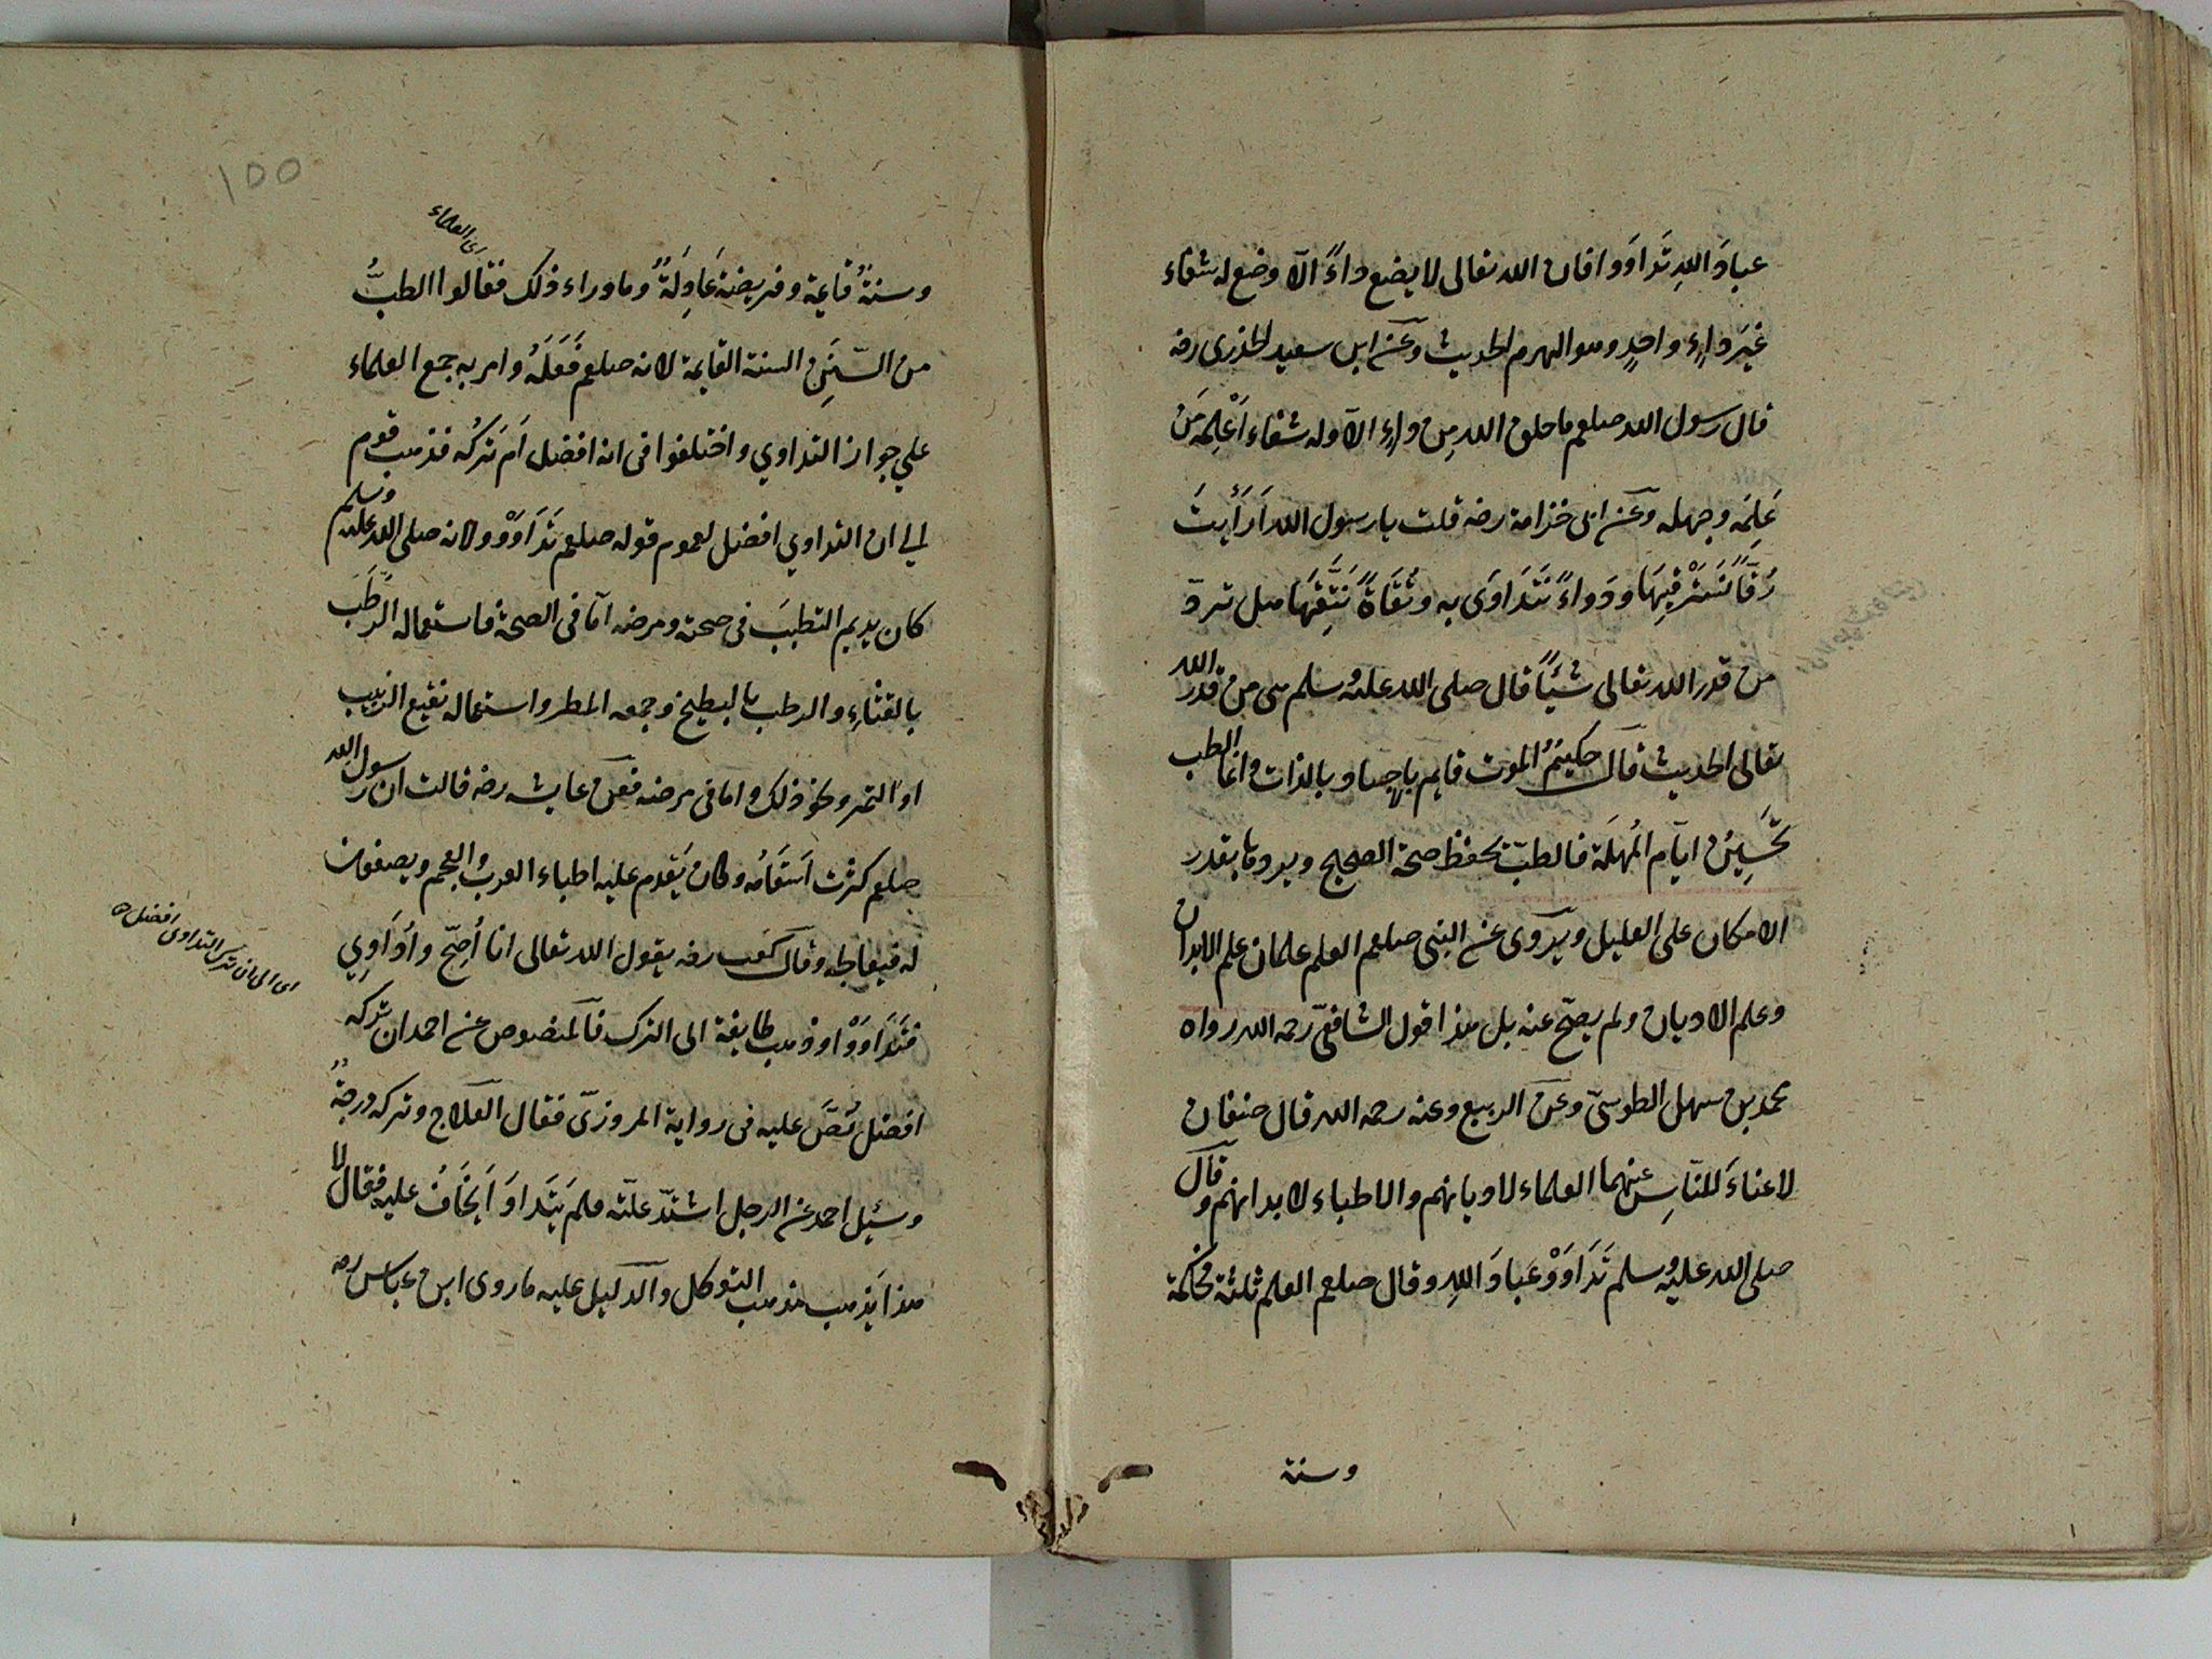 عبادَ اللهِ تَداوَوا فان الله تعالى لا يضع داءً الّا وضع له شفاء
غيرَ داءٍ واحدٍ وهو الهرم الحديث وعن ابى سعيد الخذرى رضه
قال رسول الله صلعم ما خلق الله من داءٍ الّا وله شفاء اعْلِمَه مَن
عَلِمَه وجهله وعن ابى خزامة رضه قلت يا رسول الله اَرَأيتَ
رُقًا نَسْتَرْقِيهَا ودَواءً نَتَداوَى به وتُقَاةً نَتَّقِيهَا هل تردّ
من قدر الله تعالى شيئًا قال صلى الله عليه وسلم هى من قدر الله
تعالى الحديث قال حكيمٌ الموت قايم بالذات وانما الطب
تَحْسِينُ ايّام المُهلَة فالطبّ يحفظ صحة الصحيح ويرد ما بقدر
الامكان على العليل ويروى عن النبى صلعم العلم علمان علم الابدان
وعلم الاديان ولم يصحّ عنه بل هذا قول الشافعىّ رحمه الله رواه
محمد بن سهل الطوسىّ وعن الربيع وعنه رحمه الله قال صنفان
لا غناءَ للنّاسِ عنهما العلماء لاديانهم والاطباء لابدانهم وقال
صلى الله عليه وسلم تَدَاوَوْ عبادَ اللهِ وقال صلعم العلم ثلثة محكمة
وسنة
١٥٥
اى العلماء
وسنةٌ قايمة وفريضة عَادِلَةٌ وما وراء ذلك فقالوا الطبُّ
من السّنَنِ السنة القايمة لانه صلعم فَعَلَهُ وامر به جمع العلماء
علي جواز التداوي واختلفوا فى انه افضل اَم تركُه فذهب قوم
الي ان التداوي افضل لعموم قوله صلعم تَدَاوَوْ ولانه صلى الله عليه وسلم
كان يديم التطببَ فى صحته ومرضه امّا فى الصحة فاستعماله الرطَبَ
بالقثاءِ والرطب بالبطيخ وجمعه المطر واستعماله نقيع الزبيب
او التمر ونحو ذلك واما فى مرضه فعن عايشه رضه قالت ان رسول الله
صلعم كثرت اَسقَامُه وكان يَقدم عليه اطباء العرب والعجم ويصفون
له فيعالجه وقال كعب رضه يقول الله تعالى انا اُصحّ واُدَاوِي
فتَدَاوَوْا وذهب طايفة الى الترك فالمنصوص عن احمد ان تركه
افضل نُصَّ عليه فى رواية المروزىّ فقال العلاج وتركه درجةٌ
وسُئِل احمد عن الرجل اشتدّ علّته فلم يَتَداوَ اَيُخَافُ عليه فقال لا
هذا يَذهب مذهب التوكل والدليل عليه ما روى ابن عباس رضه
اى الى ان ترك التداوى افضل